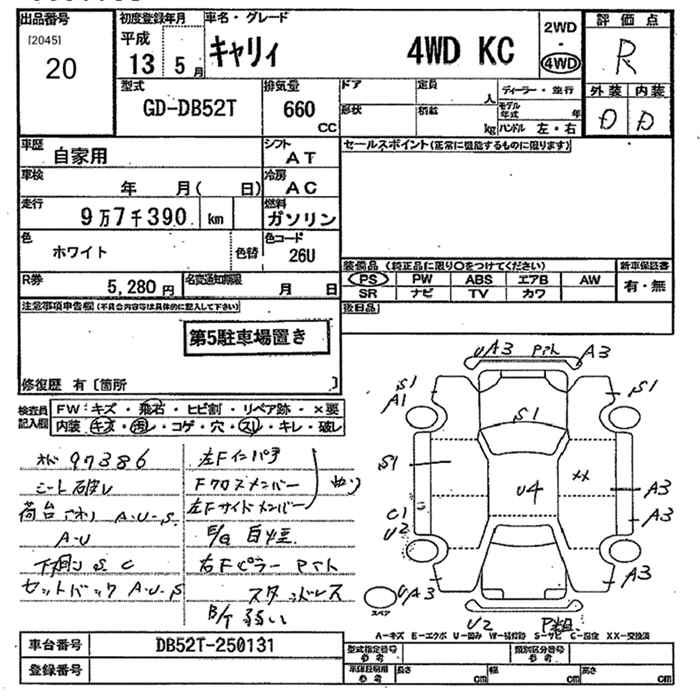 出品番号 初度登録年月 車名・グレード 2WD 評価点
[2045] 平成 キャリィ 4WD KC ・ R
20 13 5月 4WD
型式 排気量 ドア 定員 人 ディーラー・並行 外装 内装
GD-DB52T 660 CC 形状 積載 kg モデル年式 年 D D
ハンドル 左・右
車歴 自家用 シフト AT セールスポイント(正常に機能するものに限ります)
車検 年 月( 日) 冷房 AC
走行 9万7千390 km 燃料 ガソリン
色 ホワイト 色替 色コード 26U
装備品 (純正品に限り○をつけてください) 新車保証書
R券 5,280円 名変通知期限 月 日 PS PW ABS エアB AW 有・無
SR ナビ TV カワ
注意事項申告欄(不具合内容等は具体的に記入して下さい) 後日品
第5駐車場置き
修復歴 有〔箇所 〕
検査員記入欄 FW:キズ・飛石・ヒビ割・リペア跡・×要
内装 キズ・汚レ・コゲ・穴・スレ・キレ・破レ
97386 左Fインパネ
シート破レ Fクロスメンバー
荷台 A・U・S 左Fサイドメンバー
A・U E/G
下廻り S C 右Fピラー
セットバック A・U・S スタッドレス
B/T 弱い
UA3 A3
S1 A1 S1 S1
S1 U4 XX A3
C1 U2 A3
UA3 A3
スペア
U2 P粗
A-キズ E-エクボ U-凹み W-補修跡 S-サビ C-腐食 XX-交換済
車台番号 DB52T-250131 型式指定番号 参考 類別区分番号 参考
登録番号 車庫証明用 参考 長さ cm 幅 cm 高さ cm